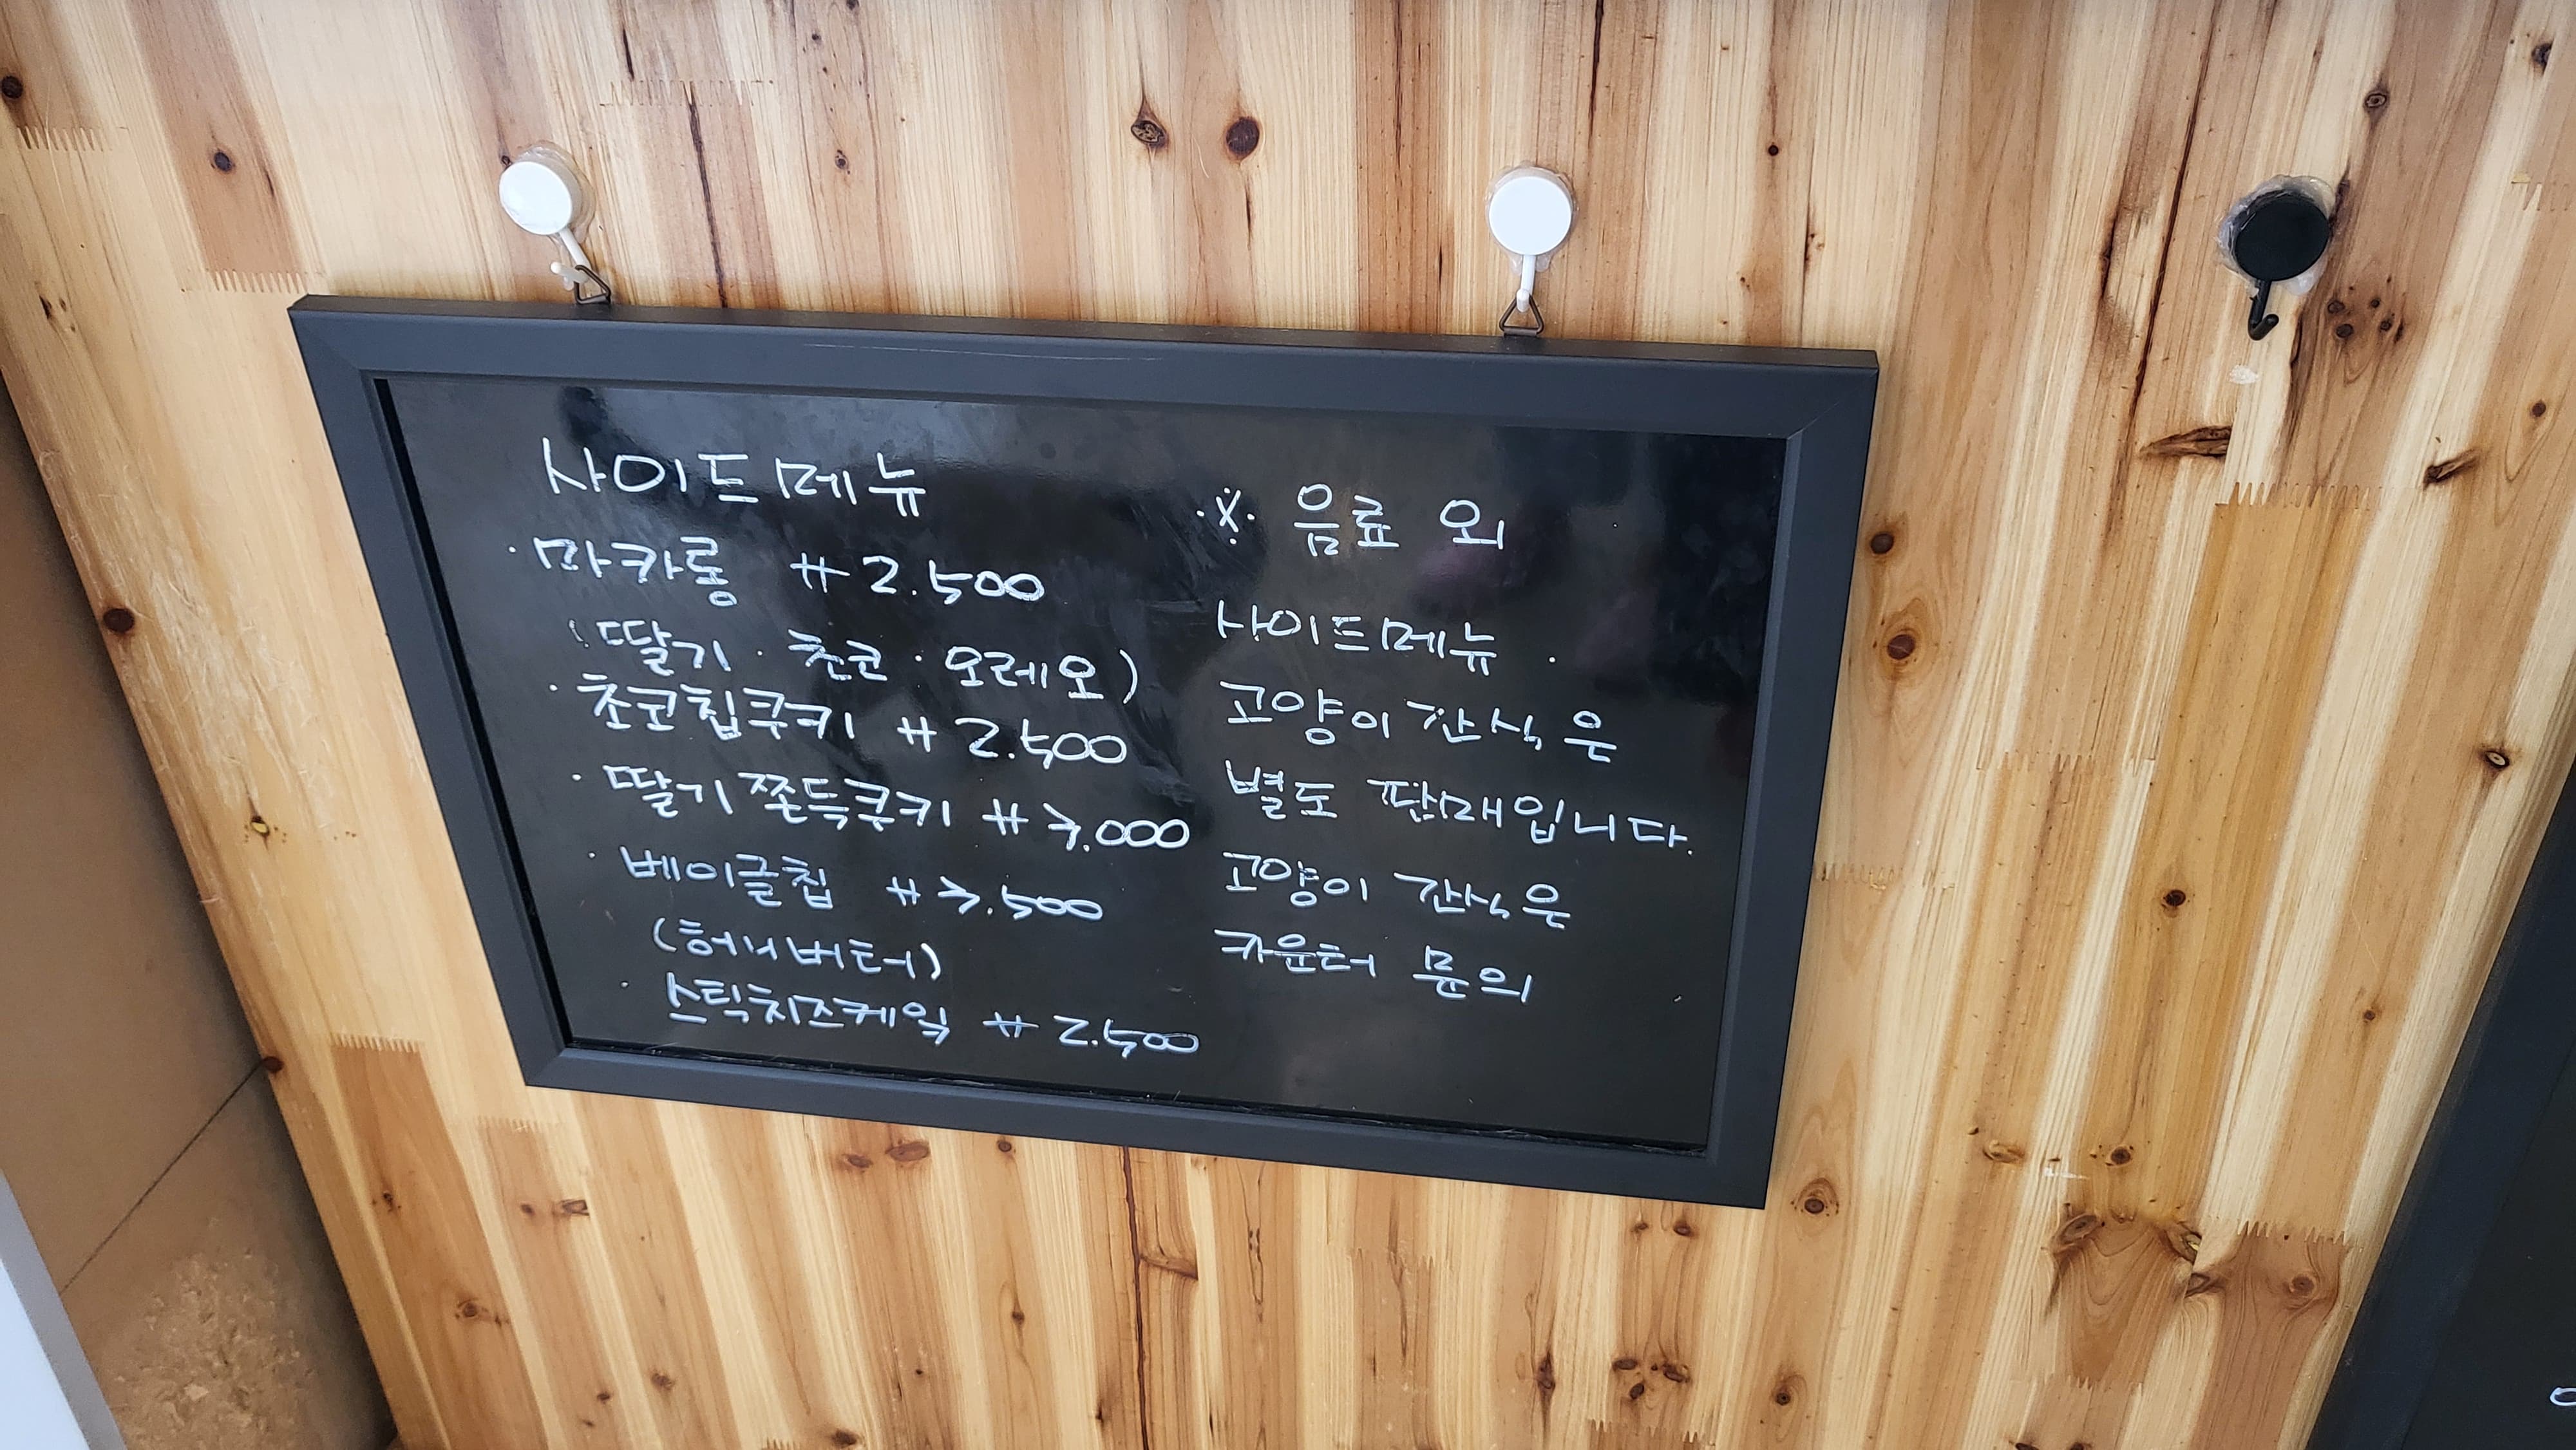 사이드메뉴
· 마카롱 ₩2.500
(딸기 · 초코 · 오레오)
· 초코칩쿠키 ₩2.500
· 딸기쫀득쿠키 ₩3.000
· 베이글칩 ₩3.500
(허니버터)
· 스틱치즈케익 ₩2.500
※ 음료 외
사이드메뉴 ·
고양이 간식은
별도 판매입니다.
고양이 간식은
카운터 문의